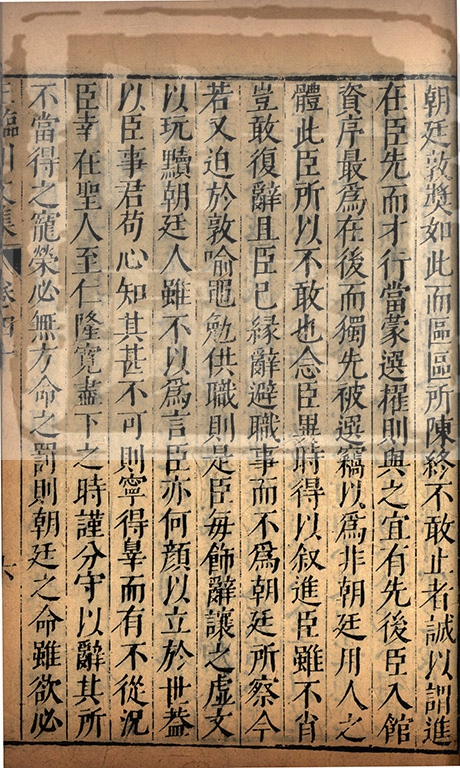 朝廷敦奬如此而區區所陳終不敢止者誠以謂進
在臣先而才行當蒙選擢則與之宜有先後臣入館
資序最爲在後而獨先被選竊以爲非朝廷用人之
體此臣所以不敢也念臣異時得以叙進臣雖不肖
豈敢復辭且臣巳緣辭避職事而不爲朝廷所察今
若又迫於敦喻黽勉供職則是臣每飾辭讓之虛文
以玩黷朝廷人雖不以爲言臣亦何顔以立於世葢
以臣事君苟心知其甚不可則寧得辠而有不從況
臣幸在聖人至仁隆寛盡下之時謹分守以辭其所
不當得之寵榮必無方命之罰則朝廷之命雖欲必
臨川文集 卷四十 六